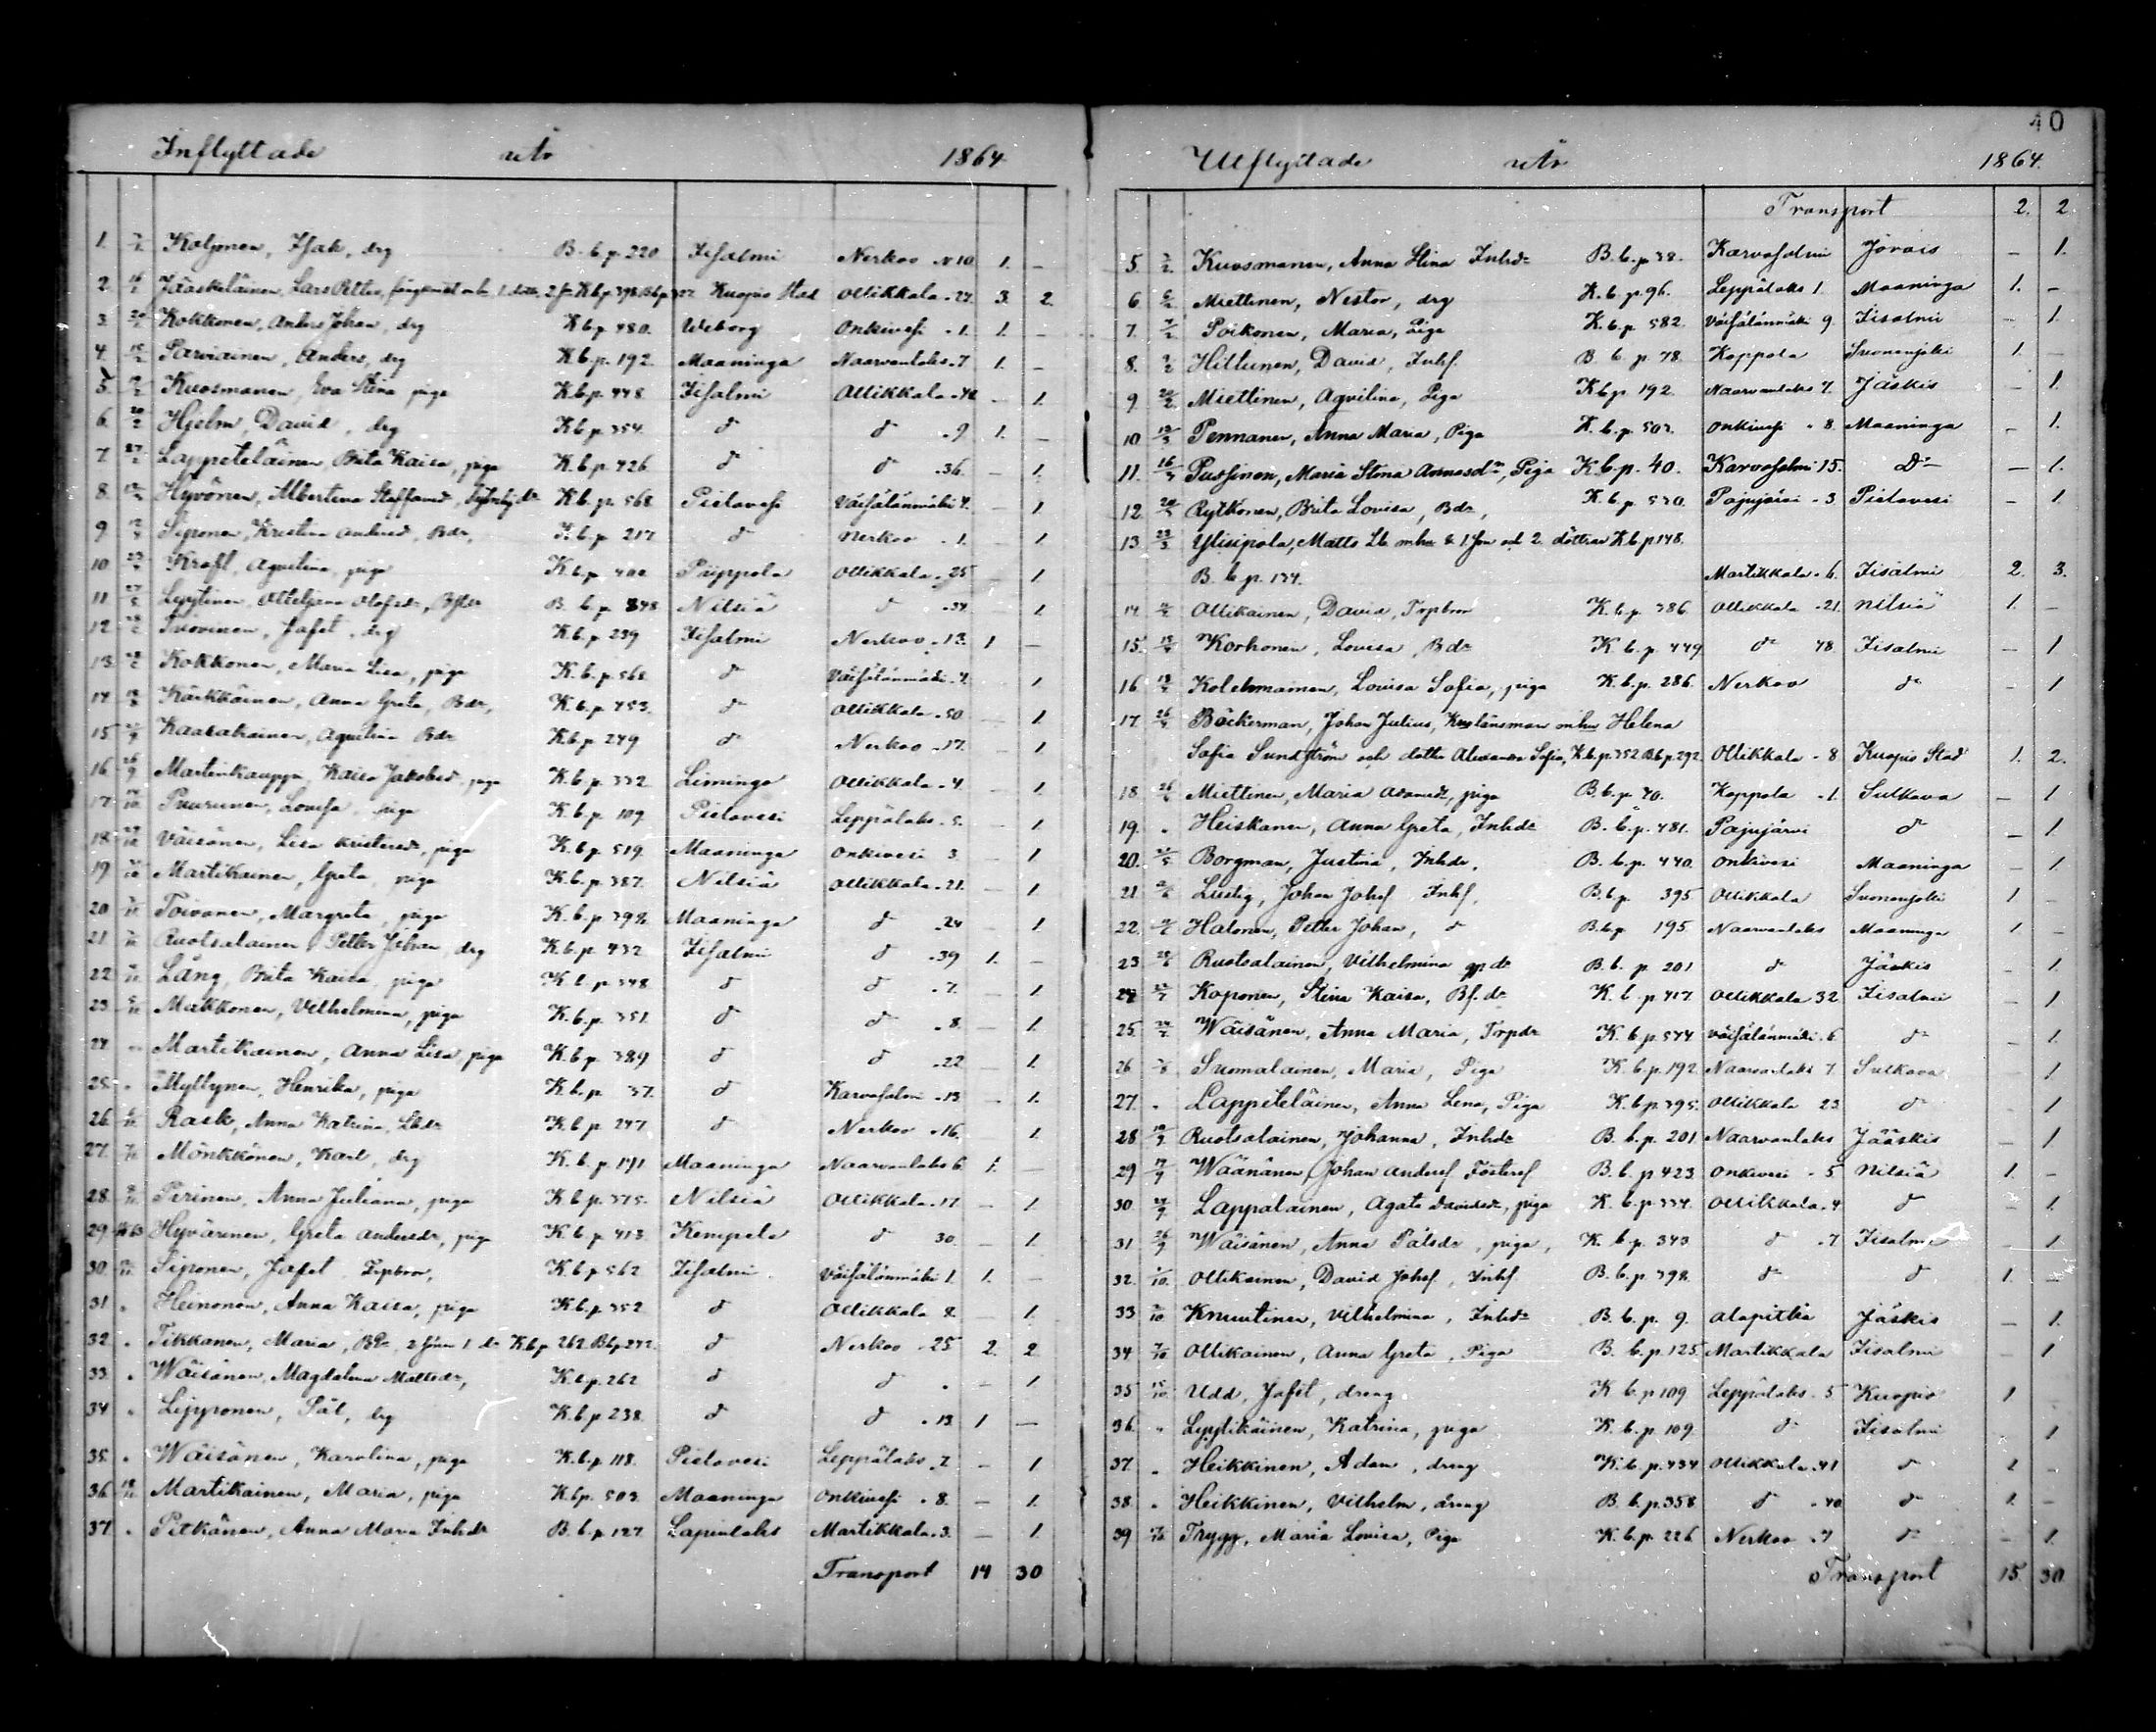 40
Inflyttade åtr 1864
1. Koljonen, Isak, drg B. b. p. 220 Iisalmi Nerkoo N 10 1. —
2. Jääskeläinen, Lars Petter, Kuopio Stad Ollikkala . 27. 3. 2
3. Kokkonen, Anders Johan, drg K b p. 480. Weborg Onkivesi . 1. 1. —
4. Parviainen, Anders, drg K. b. p. 192. Maaninga Naarvanlaks . 7 1. —
5. Kuosmanen, Eva Stina piga K. b. p. 448. Iisalmi Ollikkala . 48. — 1.
6. Hjelm, David, drg K b p. 354. d d . 9 1. —
7. Lappeteläinen, Brita Kaisa, piga K. b. p. 426 d d . 36. — 1.
8. Hyvönen, Albertina Staffansd, K. b. p. 568 Pielavesi Väisälänmäki 4. — 1.
9. Siponen, Kristina Andersd, Bdr, K. b. p. 217 d Nerkoo . 1. — 1.
10. Kraft, Agvilina, piga K. b. p. 400 Piippola Ollikkala . 25 — 1
11. Lyytinen, Olofsdr, B. b. p. 348 Nilsiä d . 34 — 1
12. Tuovinen, Jafet, drg K. b. p. 239 Iisalmi Nerkoo . 13. 1 —
13. Kokkonen, Maria Lisa, piga K. b. p. 568 d Väisälänmäki . 4. — 1
14. Kärkkäinen, Anna Greta, Bdr, K. b. p. 453. d Ollikkala . 50 — 1.
15. Kaasalainen, Agvilina Bdr K. b. p. 249 d Nerkoo . 17. — 1
16. Martinkauppi, Kaisa Jakobsd, piga K. b. p. 332 Liminga Ollikkala . 4. — 1
17. Puurunen, Lovisa, piga K. b. p. 109 Pielavesi Leppälaks . 5. — 1
18. Väisänen, Lisa Kristersd, piga K. b. p. 519. Maaninga Onkivesi 3. — 1
19. Martikainen, Greta, piga K. b. p. 387. Nilsiä Ollikkala . 21. — 1.
20. Toivanen, Margreta, piga K. b. p. 398. Maaninga d . 24 — 1
21. Ruotsalainen, Petter Johan, drg K. b. p. 432 Iisalmi d . 39 1. —
22. Lång, Brita Kaisa, piga K. b. p. 348 d d . 7. — 1.
23. Makkonen, Vilhelmina, piga K. b. p. 351. d d . 8. — 1.
24. Martikainen, Anna Lisa piga K. b. p. 389 d d . 22 — 1.
25. Myllynen, Henrika, piga K. b. p. 37. d Karvasalmi . 13 — 1.
26. Rask, Anna Katrina, K. b. p. 247. d Nerkoo . 16. 1.
27. Mönkkönen, Karl, drg K. b. p. 191 Maaninga Naarvanlaks 6 1. —
28. Pirinen, Anna Juliana, piga K. b. p. 375. Nilsiä Ollikkala . 17 — 1.
29. Hyvärinen, Greta Andersdr, piga K. b. p. 413. Kempele d 30. — 1.
30. Siponen, Jafet K. b. p 562 Iisalmi Väisälänmäki 1. 1. —
31. Heinonen, Anna Kaisa, piga K. b. p. 352 d Ollikkala 8. — 1.
32. Tikkanen, Maria, K. b. p. 262 d Nerkoo . 25 2. 2
33. Wäisänen, Magdalena Mattsdr, K. b. p. 262 d d . — 1.
34. Lipponen, Pål, drg K. b. p 238. d d . 13 1 —
35. Wäisänen, Karolina, piga K. b. p. 118. Pielavesi Leppälaks . 7. — 1
36. Martikainen, Maria, piga K. b. p. 503. Maaninga Onkivesi . 8. — 1.
37. Pitkänen, Anna Maria Inhdr B. b. p. 127. Lapinlahs Martikkala . 3. — 1.
Transport 14 30
Utflyttade åtr 1864.
Transport 2. 2.
5. Kuosmanen, Anna Stina Inhdr B. b. p 38. Karvasalmi Jorois — 1.
6. Miettinen, Nestor, drg K. b. p. 96. Leppälaks 1. Maaninga 1. —
7. Poikonen, Maria, Piga K. b. p. 582. Väisälänmäki 9. Iisalmi — 1.
8. Hiltunen, David, Inhs. B. b. p. 78. Koppola Suonenjoki 1. —
9. Miettinen, Agvilina, Piga K b p. 192. Naarvanlaks 7. Jäskis — 1.
10. Pennanen, Anna Maria, Piga K. b. p. 503. Onkivesi . 8. Maaninga — 1.
11. Pussinen, Maria Stina Annasdr, Piga K. b. p. 40. Karvasalmi 15. dr — 1.
12. Rytkönen, Brita Lovisa, Bdr, K. b. p. 530. Pajujärvi . 3 Pielavesi — 1
13. Ylisipola, Matts Lb. m. hu & 1. son och 2. döttrar K b p 148.
B. b. p. 134. Martikkala . 6. Iisalmi 2. 3.
14. Ollikainen, David, Trpbror K. b. p. 386 Ollikkala . 21. Nilsiä 1. —
15. Korhonen, Lovisa, Bdr K. b. p. 449 dr 48. Iisalmi — 1
16. Kolehmainen, Lovisa Sofia, piga K. b. p. 286. Nerkoo dr — 1
17. Böckerman, Johan Julius, Kronlänsman m. hu Helena
Sofia Sundström och dotter Alexandra Sofia, K. b. p. 352 B b p. 292. Ollikkala . 8 Kuopio Stad 1. 2.
18. Miettinen, Maria Adamsdr, piga B. b. p. 70. Koppola . 1. Sulkava — 1
19. Heiskanen, Anna Greta, Inhdr B. b. p. 481. Pajujärvi d — 1.
20. Borgman, Justina, Inhdr, B. b. p. 440. Onkivesi Maaninga — 1.
21. Lustig, Johan Johs Inhs. B. b. p 395 Ollikkala Suonenjoki 1. —
22. Halonen, Petter Johan, d B. b. p 195 Naarvanlaks Maaninga 1 —
23. Ruotsalainen, Vilhelmina B. b. p. 201 d Jäskis — 1.
24. Koponen, Stina Kaisa, Bs. dr K. b. p 417. Ollikkala 32. Iisalmi — 1
25. Wäisänen, Anna Maria, Trpdr K. b. p. 544 Väisälänmäki . 6 dr — 1
26. Suomalainen, Maria, Piga K. b. p. 192. Naarvanlaks 7. Sulkava 1
27. Lappeteläinen, Anna Lena, Piga K. b. p. 395. Ollikkala 23 d — 1
28 Ruotsalainen, Johanna, Inhdr B. b. p. 201 Naarvanlaks Jääskis — 1
29. Wäänänen, Johan Anders Fosters B. b. p 423 Onkivesi . 5 Nilsiä 1. —
30. Lappalainen, Agata Davidsdr, piga K. b. p. 334. Ollikkala . 4 d — 1
31. Wäisänen, Anna Pålsdr, piga, K. b. p. 343 d . 7 Iisalmi — 1
32. Ollikainen, David Johs, Inhs B. b. p. 398. dr d 1. —
33 Knuutinen, Vilhelmina, Inhdr B. b. p. 9. Alapitkä Jäskis — 1.
34 Ollikainen, Anna Greta, Piga B. b. p. 125 Martikkala Iisalmi — 1
35 Udd, Jafet, dreng K. b. p 109 Leppälaks . 5 Kuopio 1
36. Lyytikäinen, Katrina, piga K. b. p. 109. d Iisalmi 1
37. Heikkinen, Adam, dreng K. b. p. 434 Ollikkala . 41 d 1 —
38. Heikkinen, Vilhelm, dreng B. b. p. 358 d . 40 d 1. —
39 Trygg, Maria Lovisa, Piga K. b. p. 226 Nerkoo . 7 d — 1.
Transport 15. 30.